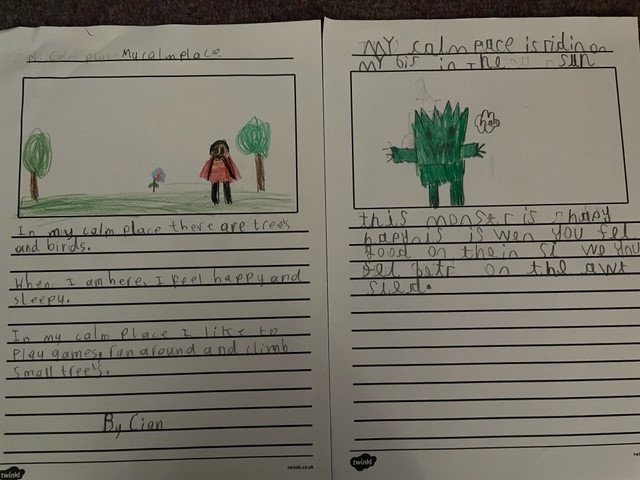 My calm place My calm place
In my calm place there are trees
and birds.
When I am here, I feel happy and
sleepy.
In my calm place I like to
play games, ran around and climb
small trees.
By Cian
twinkl
twinkl.co.uk
MY calm pace is ridin on
MY bis in The sun
this monstr is happy
hapynis is wen you fel
good on the in si we you
fel betr on the awt
sied.
twinkl